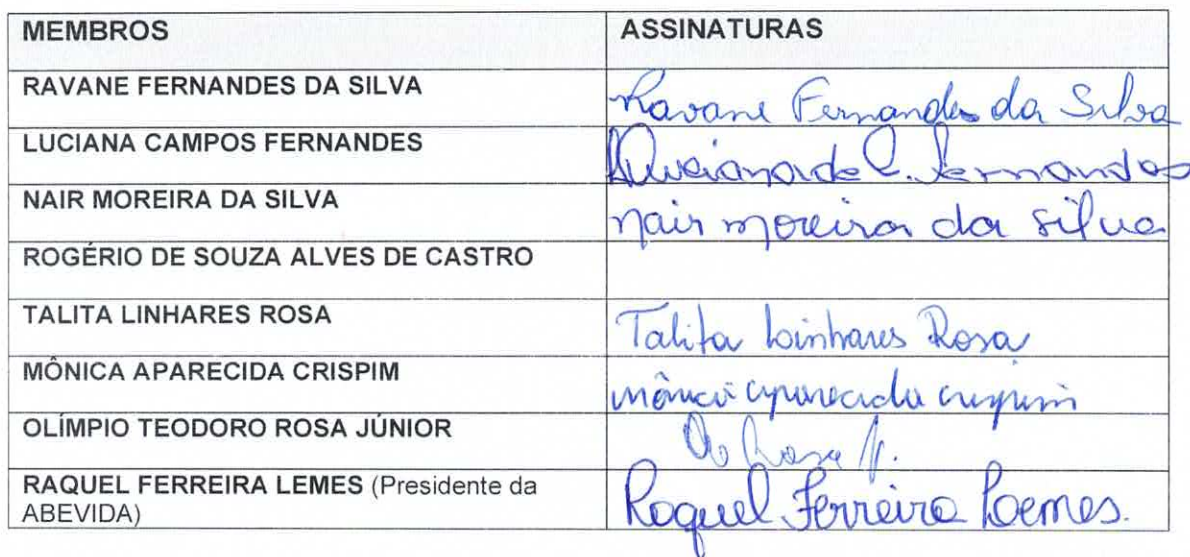 MEMBROS ASSINATURAS
RAVANE FERNANDES DA SILVA Ravane Fernandes da Silva
LUCIANA CAMPOS FERNANDES C. Fernandes
NAIR MOREIRA DA SILVA nair moreira da silva
ROGÉRIO DE SOUZA ALVES DE CASTRO
TALITA LINHARES ROSA Talita Linhares Rosa
MÔNICA APARECIDA CRISPIM mônica aparecida crispim
OLÍMPIO TEODORO ROSA JÚNIOR Rosa Jr.
RAQUEL FERREIRA LEMES (Presidente da Raquel Ferreira Lemes.
ABEVIDA)